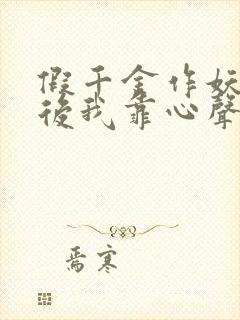 假千金作妖
後我靠心聲
焉寒